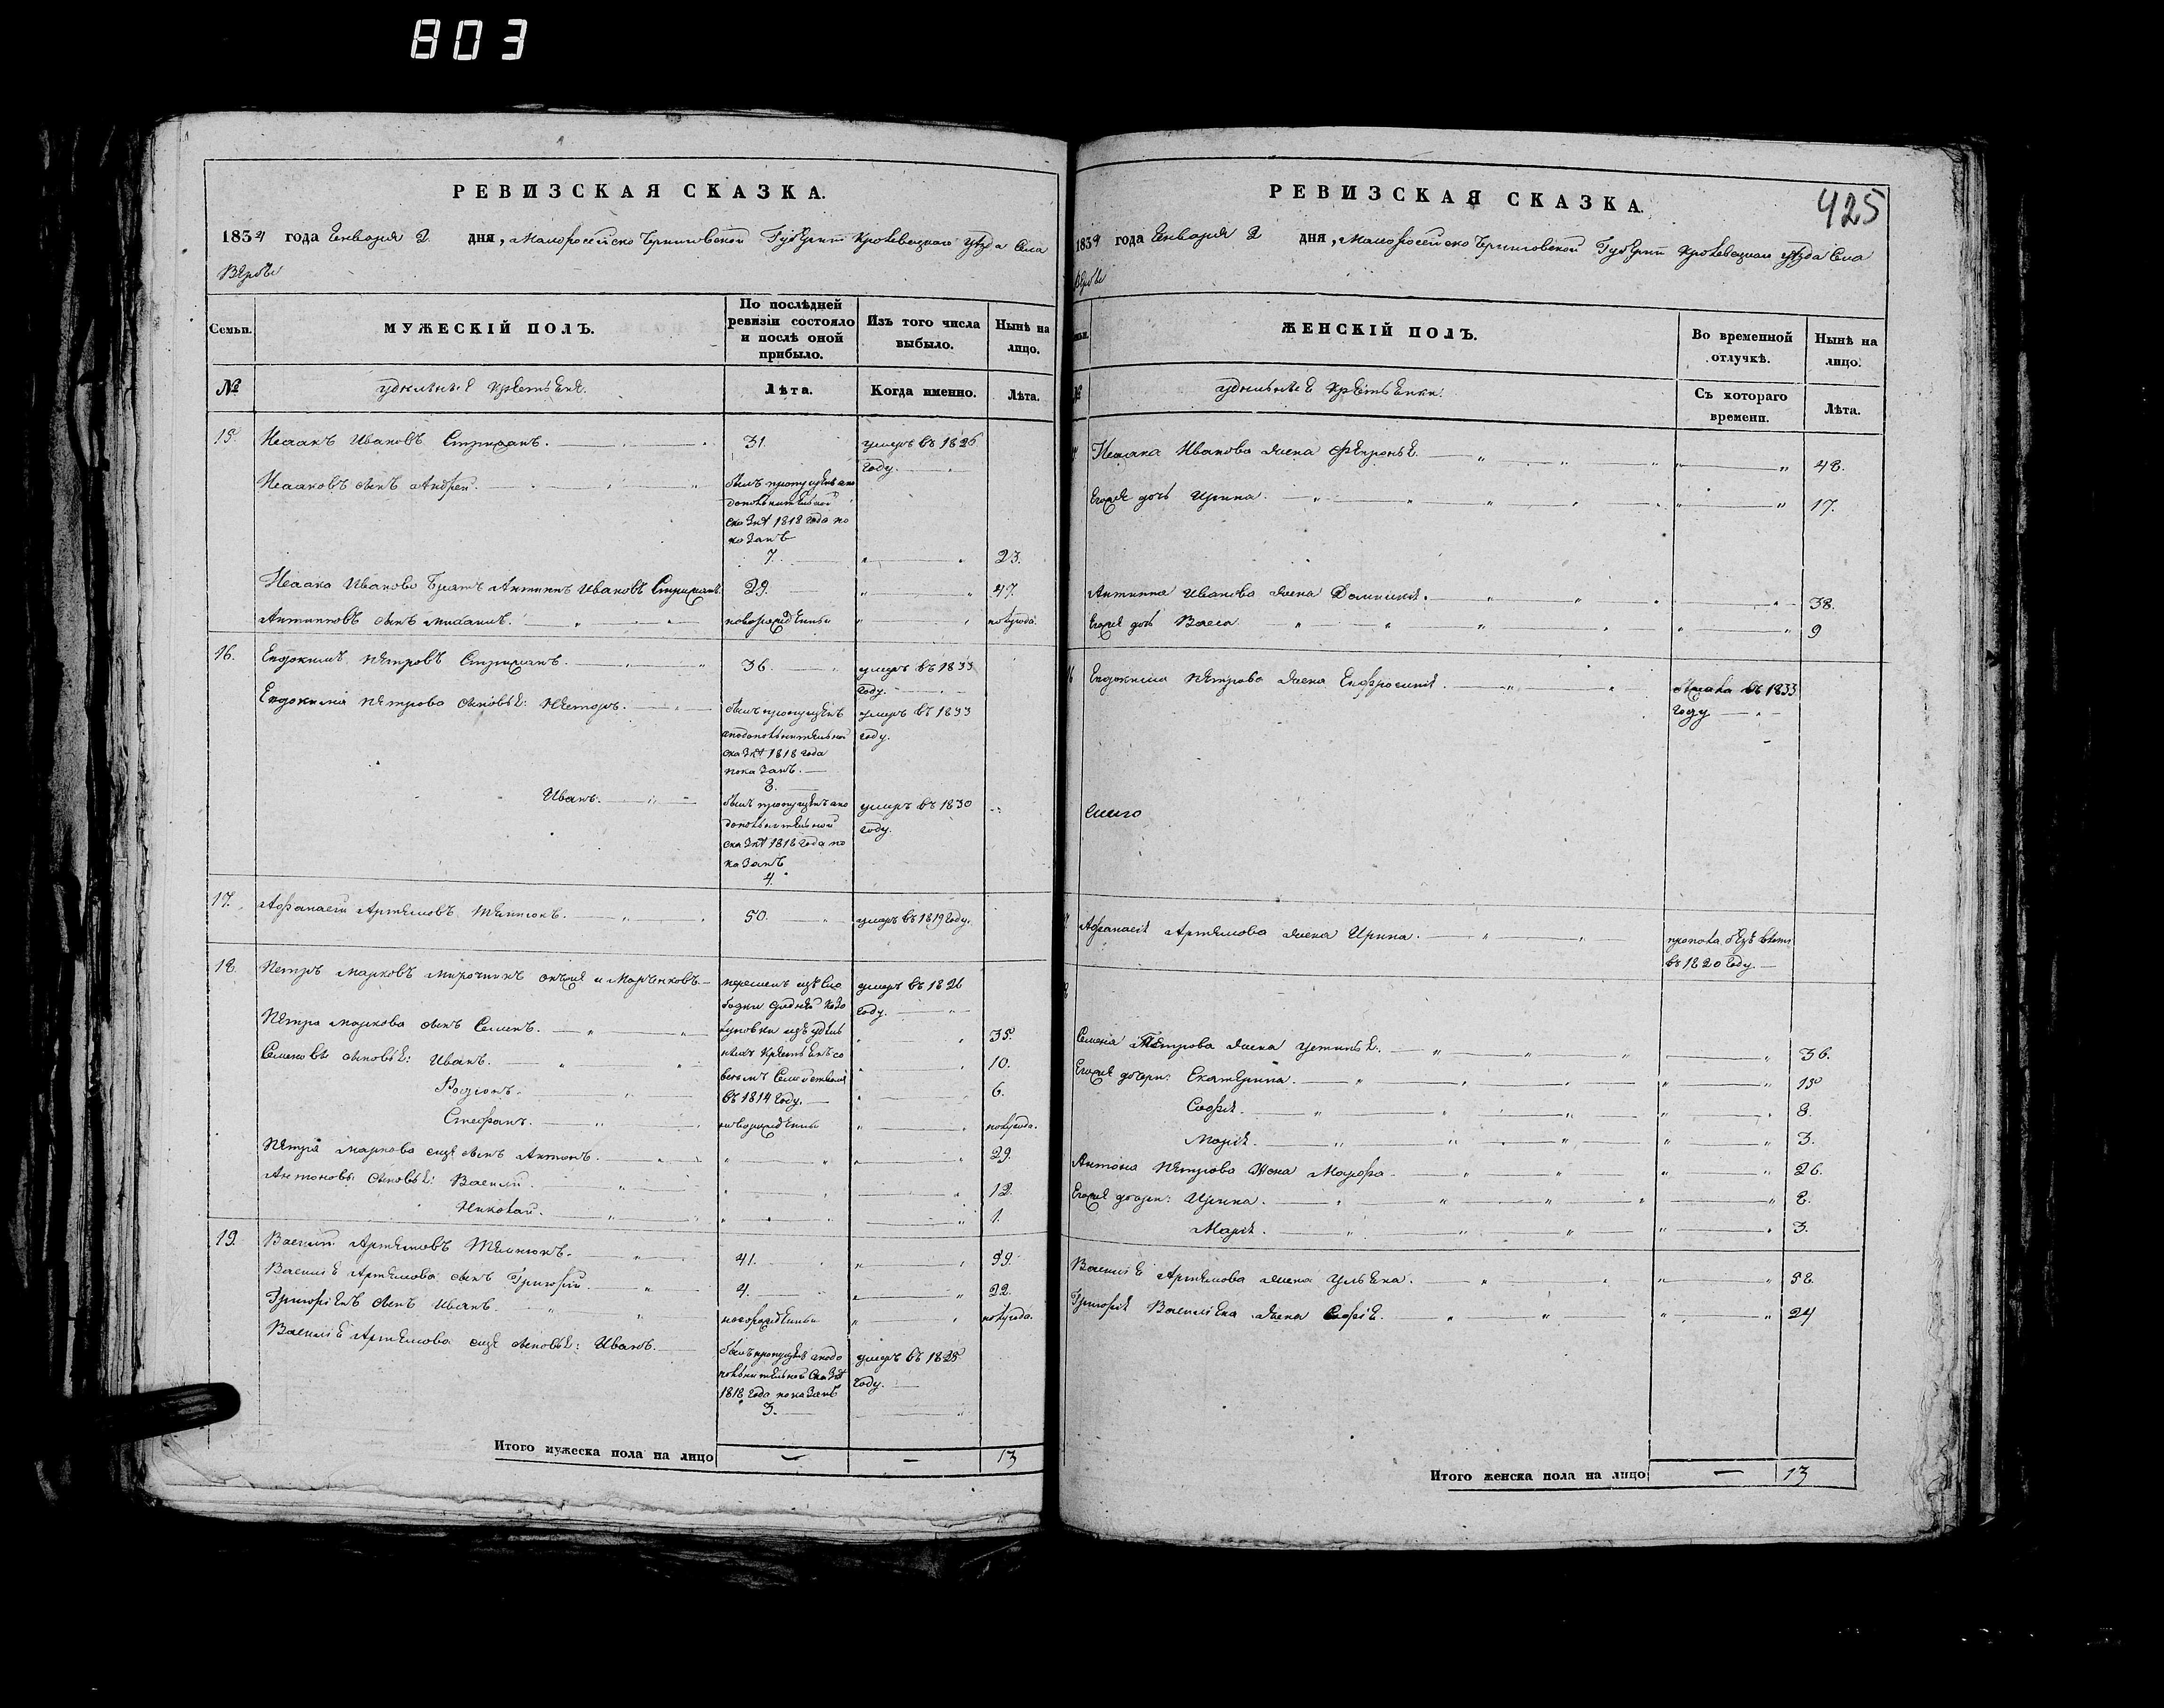 803
РЕВИЗСКАЯ СКАЗКА.
1834 года Генваря 2 дня, Малоросейско Черниговской Губернии Кролевецкаго уезда Села
Вербы
Семьи.
МУЖЕСКІЙ ПОЛЪ.
По послѣдней ревизіи состояло и послѣ оной прибыло.
Изъ того числа выбыло.
Нынѣ на лицо.
№
удельные крестьяне.
Лѣта.
Когда именно.
Лѣта.
15. Исаакъ Ивановъ 31. умеръ въ 1826
году.
Исааковъ сынъ Андрей. былъ пропущенъ а по
дополнительной
сказкѣ 1818 года по
казанъ
7. 23.
Исаака Иванова братъ Антипъ Ивановъ 29. 47.
Антиповъ сынъ Михаилъ. новорожденный полугода.
16. Евдокимъ Петровъ 36. умеръ въ 1833
году.
Евдокима Петрова сыновья: Несторъ. былъ пропущенъ умеръ въ 1833
а по дополнительной году.
сказкѣ 1818 года
показанъ.
8.
Иванъ. былъ пропущенъ а по умеръ въ 1830
дополнительной году.
сказкѣ 1818 года по
казанъ
4.
17. Афанасей Артемовъ 50. умеръ въ 1819 году.
18. Петръ Марковъ Мирочникъ онъже и Марченковъ. перешелъ изъ Сло умеръ въ 1826
бодки году.
Петра Маркова сынъ Семенъ. изъ удель 35.
Семеновы сыновья: Иванъ. ныхъ крестьянъ со 10.
Родіонъ. всемъ семействомъ 6.
въ 1814 году.
Стефанъ. новорожденный полугода.
Петра Маркова еще сынъ Антонъ. 29.
Антоновы сыновья: Василий. 12.
Николай. 1.
19. Василий Артемовъ 41. 59.
Василия Артемова сынъ Григорий. 4. 22.
Григориевъ сынъ Иванъ. новорожденный полугода.
Василия Артемова еще сыновья: Иванъ. былъ пропущенъ а по до умеръ въ 1828
полнительной сказкѣ году.
1818 года показанъ
3.
Итого мужеска пола на лицо — — 13
425
РЕВИЗСКАЯ СКАЗКА.
1834 года Генваря 2 дня, Малоросейско Черниговской Губернии Кролевецкаго уезда Села
Вербы
ЖЕНСКІЙ ПОЛЪ.
Во временной отлучкѣ.
Нынѣ на лицо.
удельные крестьянки.
Съ котораго времени.
Лѣта.
Исаака Иванова жена Февронья. 48.
Егоже дочь Ирина. 17.
Антипа Иванова жена Домникія. 38.
Егоже дочь Васса. 9
16 Евдокима Петрова жена Евфросинія. бежала въ 1833
году
Афанасія Артемова жена Ирина. пропала безъ вести
въ 1820 году.
Семена Петрова жена Устинья. 36.
Егоже дочери: Екатерина. 15
Софія. 8.
Марія. 3.
Антона Петрова жена Марфа. 26.
Егоже дочери: Ирина. 8.
Марія. 3.
Василия Артемова жена Ульяна. 58.
Григорія Васильева жена Софія. 24
Итого женска пола на лицо — 13